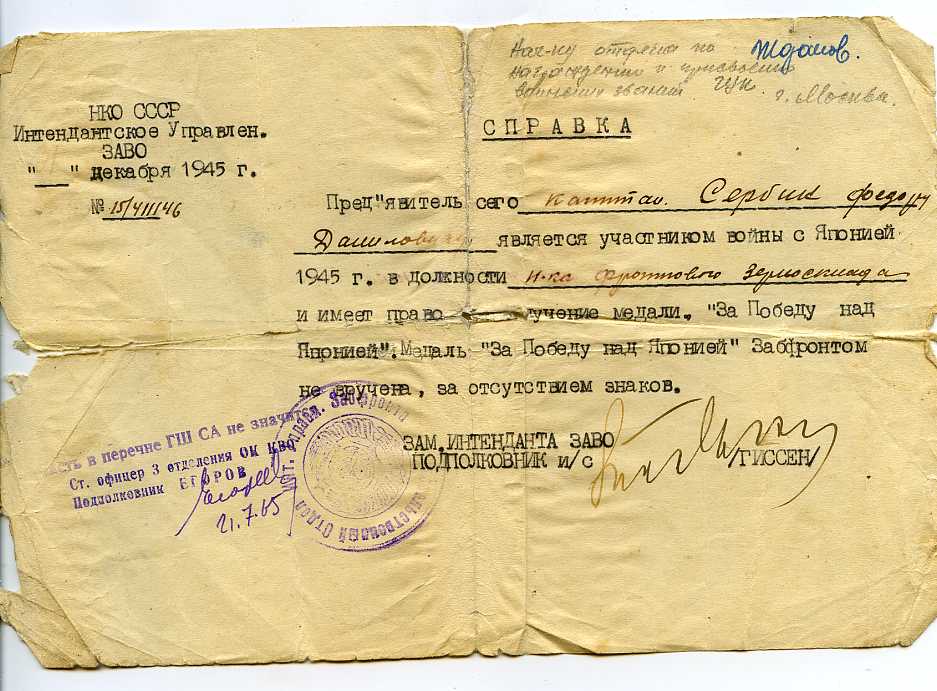 Нач-ку отдела по
награждению и присвоению
воинских званий ГУК.
г. Москва.
Жданов.
НКО СССР
Интендантское Управлен.
ЗАВО
"__" декабря 1945 г.
№ 15/41146
СПРАВКА
Пред"явитель сего капитан Сербин Федор
Данилович является участником войны с Японией
1945 г. в должности н-ка фронтового Зерносклада
и имеет право лучение медали. "За Победу над
Японией". Медаль "За Победу над Японией" Забфронтом
не вручена, за отсутствием знаков.
ЗАМ. ИНТЕНДАНТА ЗАВО
ПОДПОЛКОВНИК и/с /ГИССЕН/
сть в перечне ГШ СА не значитс
Ст. офицер 3 отделения ОК КВО
Подполковник ЕГОРОВ
21.7.65
Инт. Управл. Забфронта
ОТДЕЛ